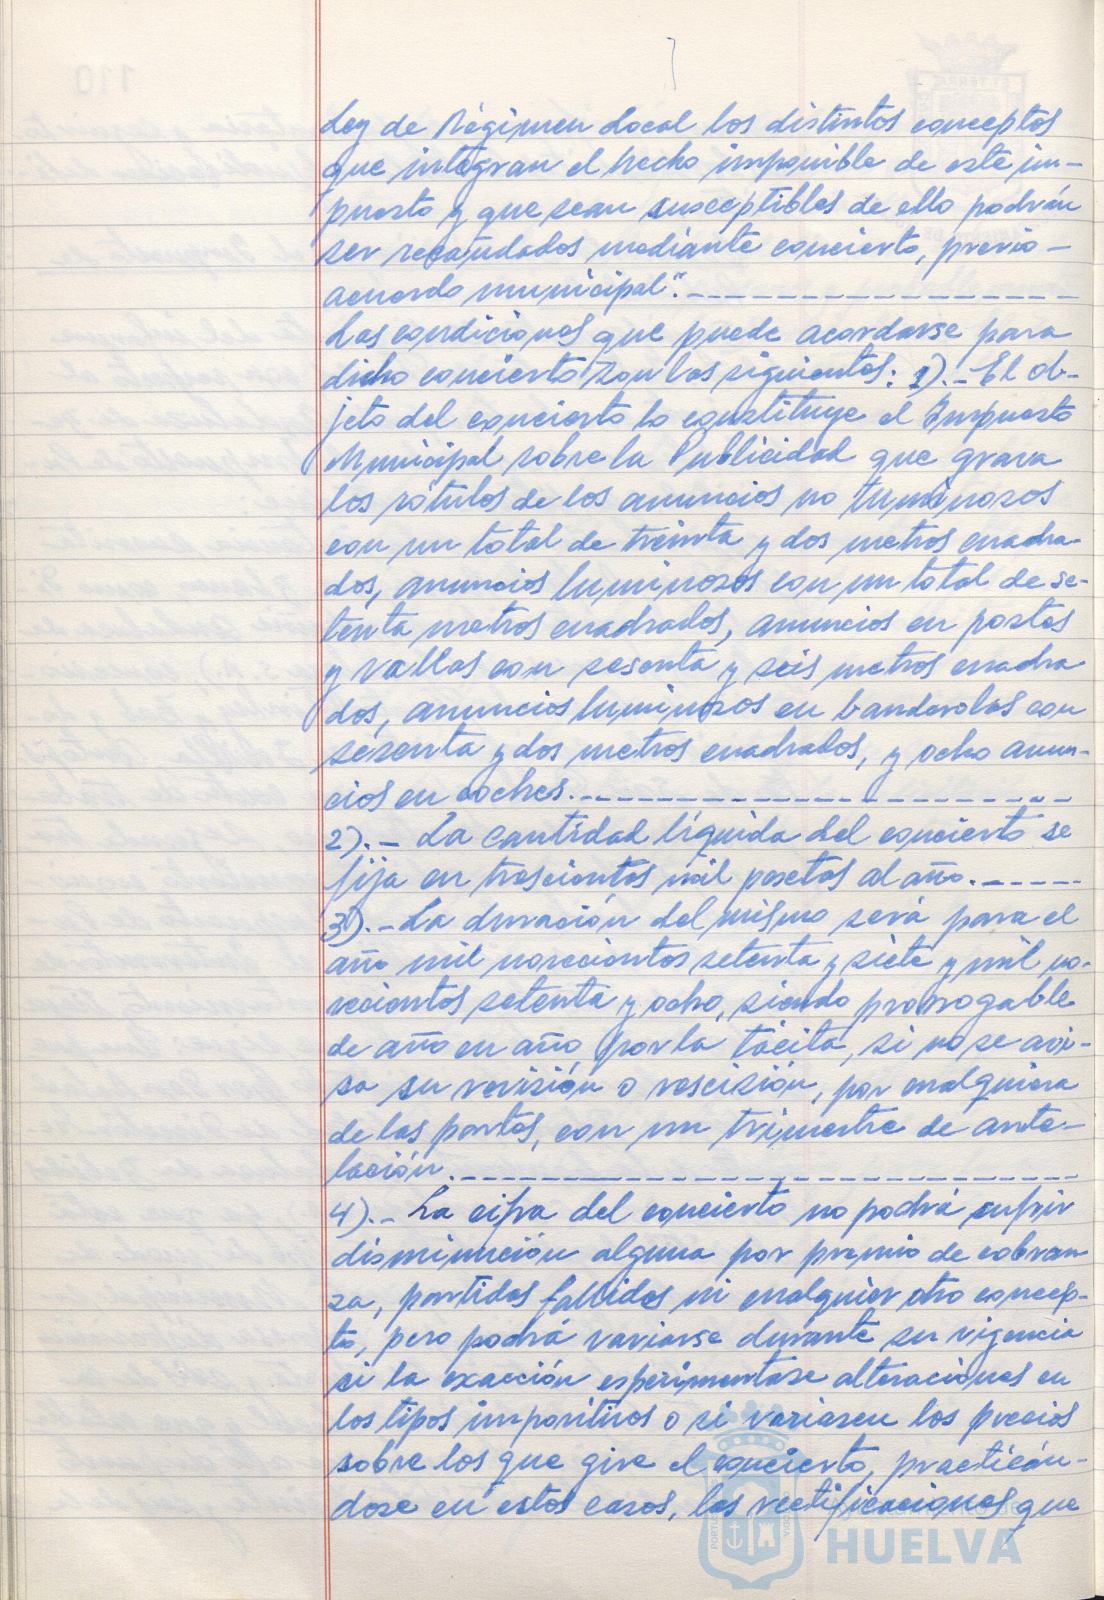 Ley de Régimen Local los distintos conceptos
que integran el hecho imponible de este im-
puesto y que sean susceptibles de ello podrán
ser recaudados mediante concierto, previo
acuerdo municipal".
Las condiciones que puede acordarse para
dicho concierto son las siguientes: 1).- El ob-
jeto del concierto lo constituye el Impuesto
Municipal sobre la Publicidad que grava
los rótulos de los anuncios no luminosos
con un total de treinta y dos metros cuadra-
dos, anuncios luminosos con un total de se-
tenta metros cuadrados, anuncios en postes
y vallas con sesenta y seis metros cuadra
dos, anuncios luminosos en banderolas con
sesenta y dos metros cuadrados, y ocho anun-
cios en coches.
2).- La cantidad líquida del concierto se
fija en trescientos mil pesetas al año.
3).- La duración del mismo será para el
año mil novecientos setenta y siete y mil no-
vecientos setenta y ocho, siendo prorrogable
de año en año por la tácita, si no se avi-
sa su revisión o rescisión, por cualquiera
de las partes, con un trimestre de ante-
lación.
4).- La cifra del concierto no podrá sufrir
disminución alguna por premio de cobran
za, partidas fallidas ni cualquier otro concep-
to, pero podrá variarse durante su vigencia
si la exacción experimentase alteraciones en
los tipos impositivos o si variasen los precios
sobre los que gire el concierto, practicán-
dose en estos casos, las rectificaciones que
HUELVA